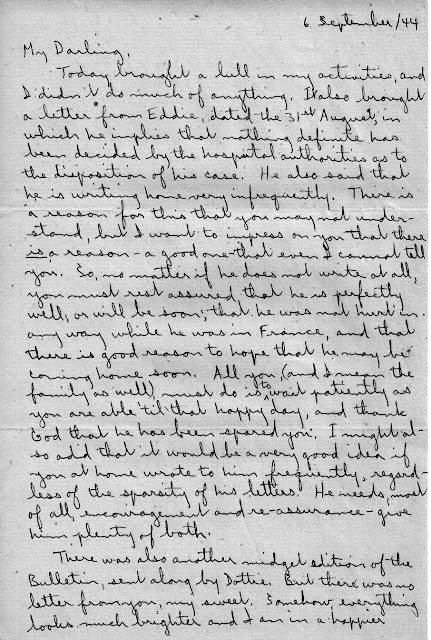 6 September/44
My Darling,
Today brought a lull in my activities, and
I didn't do much of anything. It also brought
a letter from Eddie, dated the 31st August, in
which he implies that nothing definite has
been decided by the hospital authorities as to
the disposition of his case. He also said that
he is writing home very infrequently. There is
a reason for this that you may not under-
stand, but I want to impress on you that there
is a reason - a good one - that even I cannot tell
you. So, no matter if he does not write at all,
you must rest assured, that he is perfectly
well, or will be soon; that he was not hurt in
any way while he was in France, and that
there is good reason to hope that he may be
coming home soon. All you, (and I mean the
family as well) must do is to wait patiently as
you are able 'til that happy day, and thank
God that he has been spared you. I might al-
so add that it would be a very good idea if
you at home wrote to him frequently, regard-
less of the sparsity of his letters. He needs, most
of all, encouragement and re-assurance - give
him plenty of both.
There was also another midget edition of the
Bulletin, sent along by Dottie. But there was no
letter from you, my sweet. Somehow, everything
looks much brighter and I am in a happier